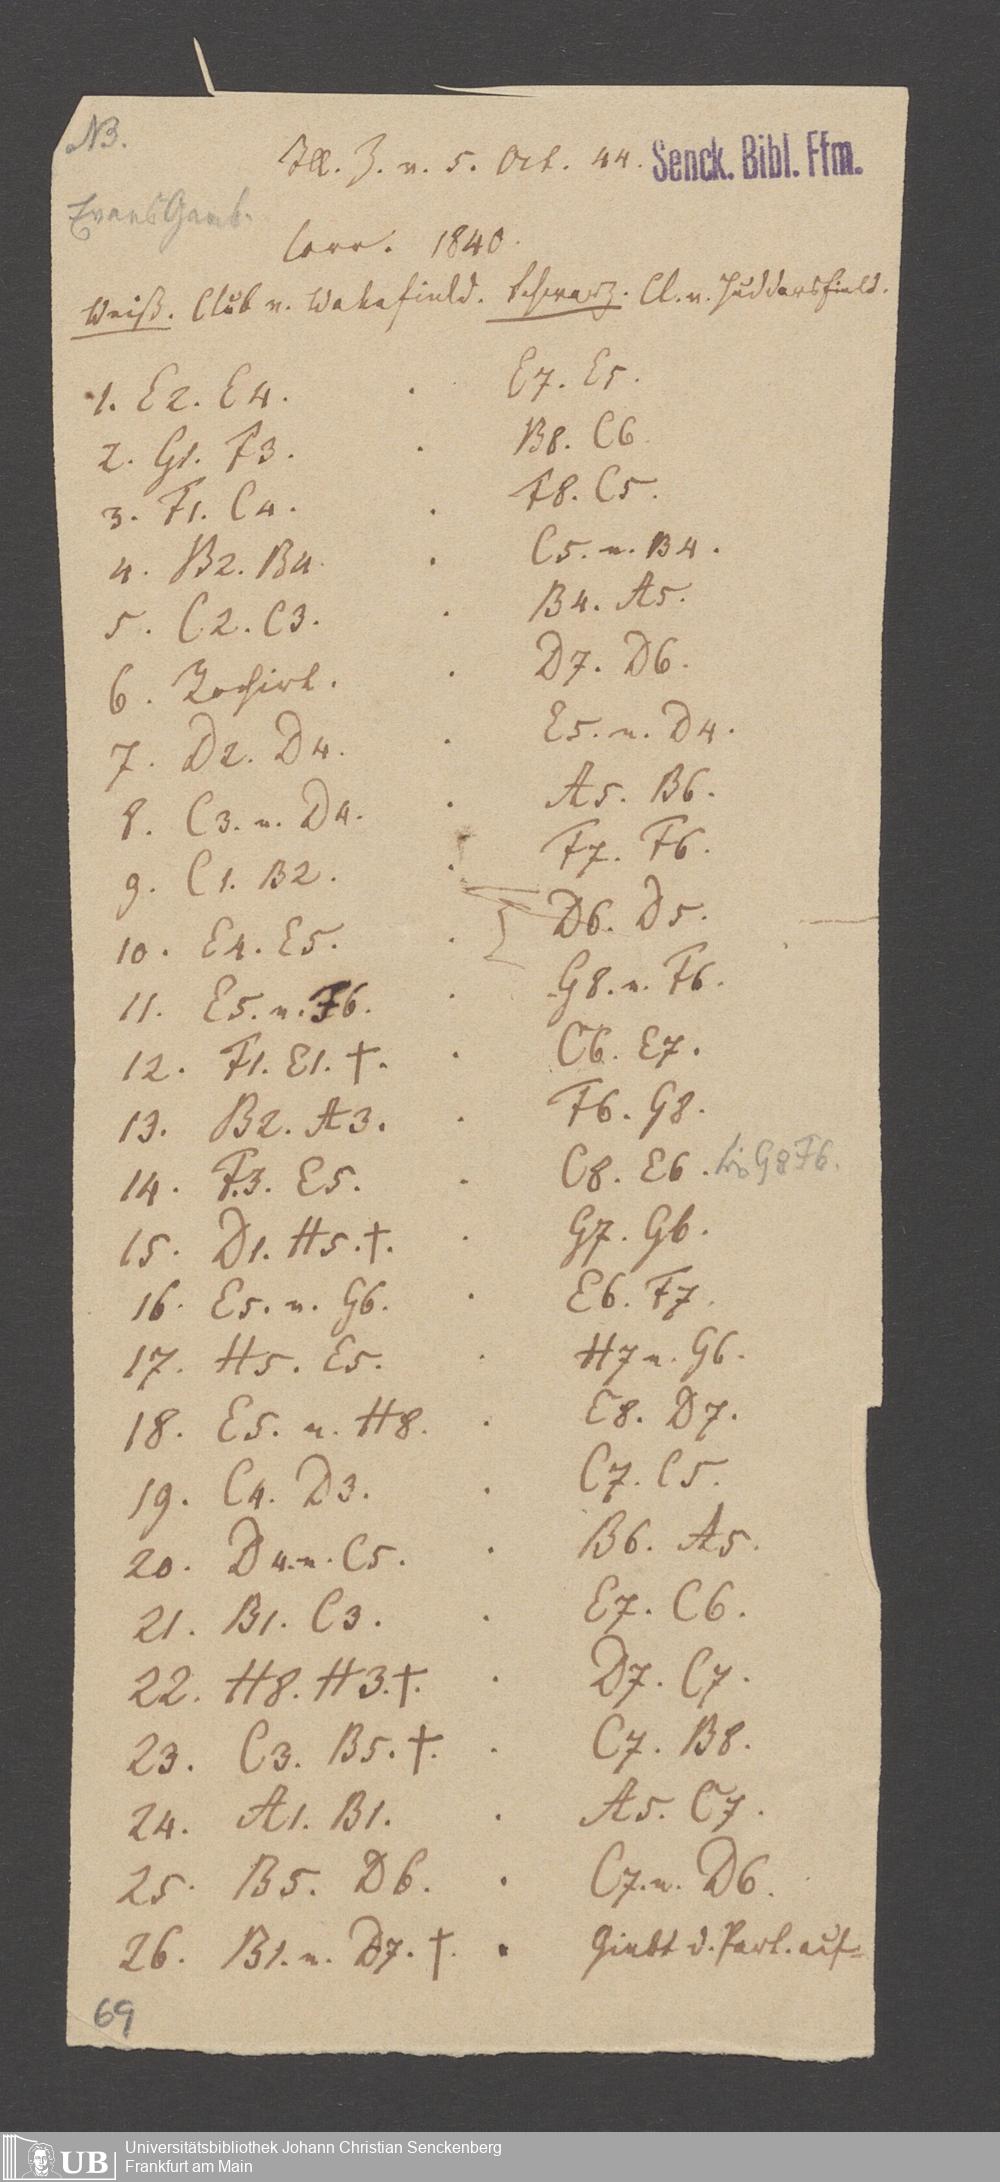 NB.
Ill. Z. v. 5. Oct. 44. Senck. Bibl. Ffm.
Evans Gamb.
Corr. 1840.
Weiß. Club v. Wakefield. Schwarz. Cl. v. Huddersfield.
1. E2. E4. . E7. E5.
2. G1. F3. . B8. C6.
3. F1. C4. . F8. C5.
4. B2. B4. . C5. n. B4.
5. C2. C3. . B4. A5.
6. Rochirt. . D7. D6.
7. D2. D4. . E5. n. D4.
8. C3. n. D4. . A5. B6.
9. C1. B2. . F7. F6.
10. E4. E5. . D6. D5.
11. E5. n. F6. . G8. n. F6.
12. F1. E1. †. . C6. E7.
13. B2. A3. . F6. G8.
14. F3. E5. . C8. E6. G8 F6.
15. D1. H5. †. . G7. G6.
16. E5. n. G6. . E6. F7.
17. H5. E5. . H7 n. G6.
18. E5. n. H8. . E8. D7.
19. C4. D3. . C7. C5.
20. D4. n. C5. . B6. A5.
21. B1. C3. . E7. C6.
22. H8. H3. †. . D7. C7.
23. C3. B5. †. . C7. B8.
24. A1. B1. . A5. C7.
25. B5. D6. . C7. n. D6.
26. B1. n. D7. †. . Giebt d. Part. auf
69
UB Universitätsbibliothek Johann Christian Senckenberg
Frankfurt am Main